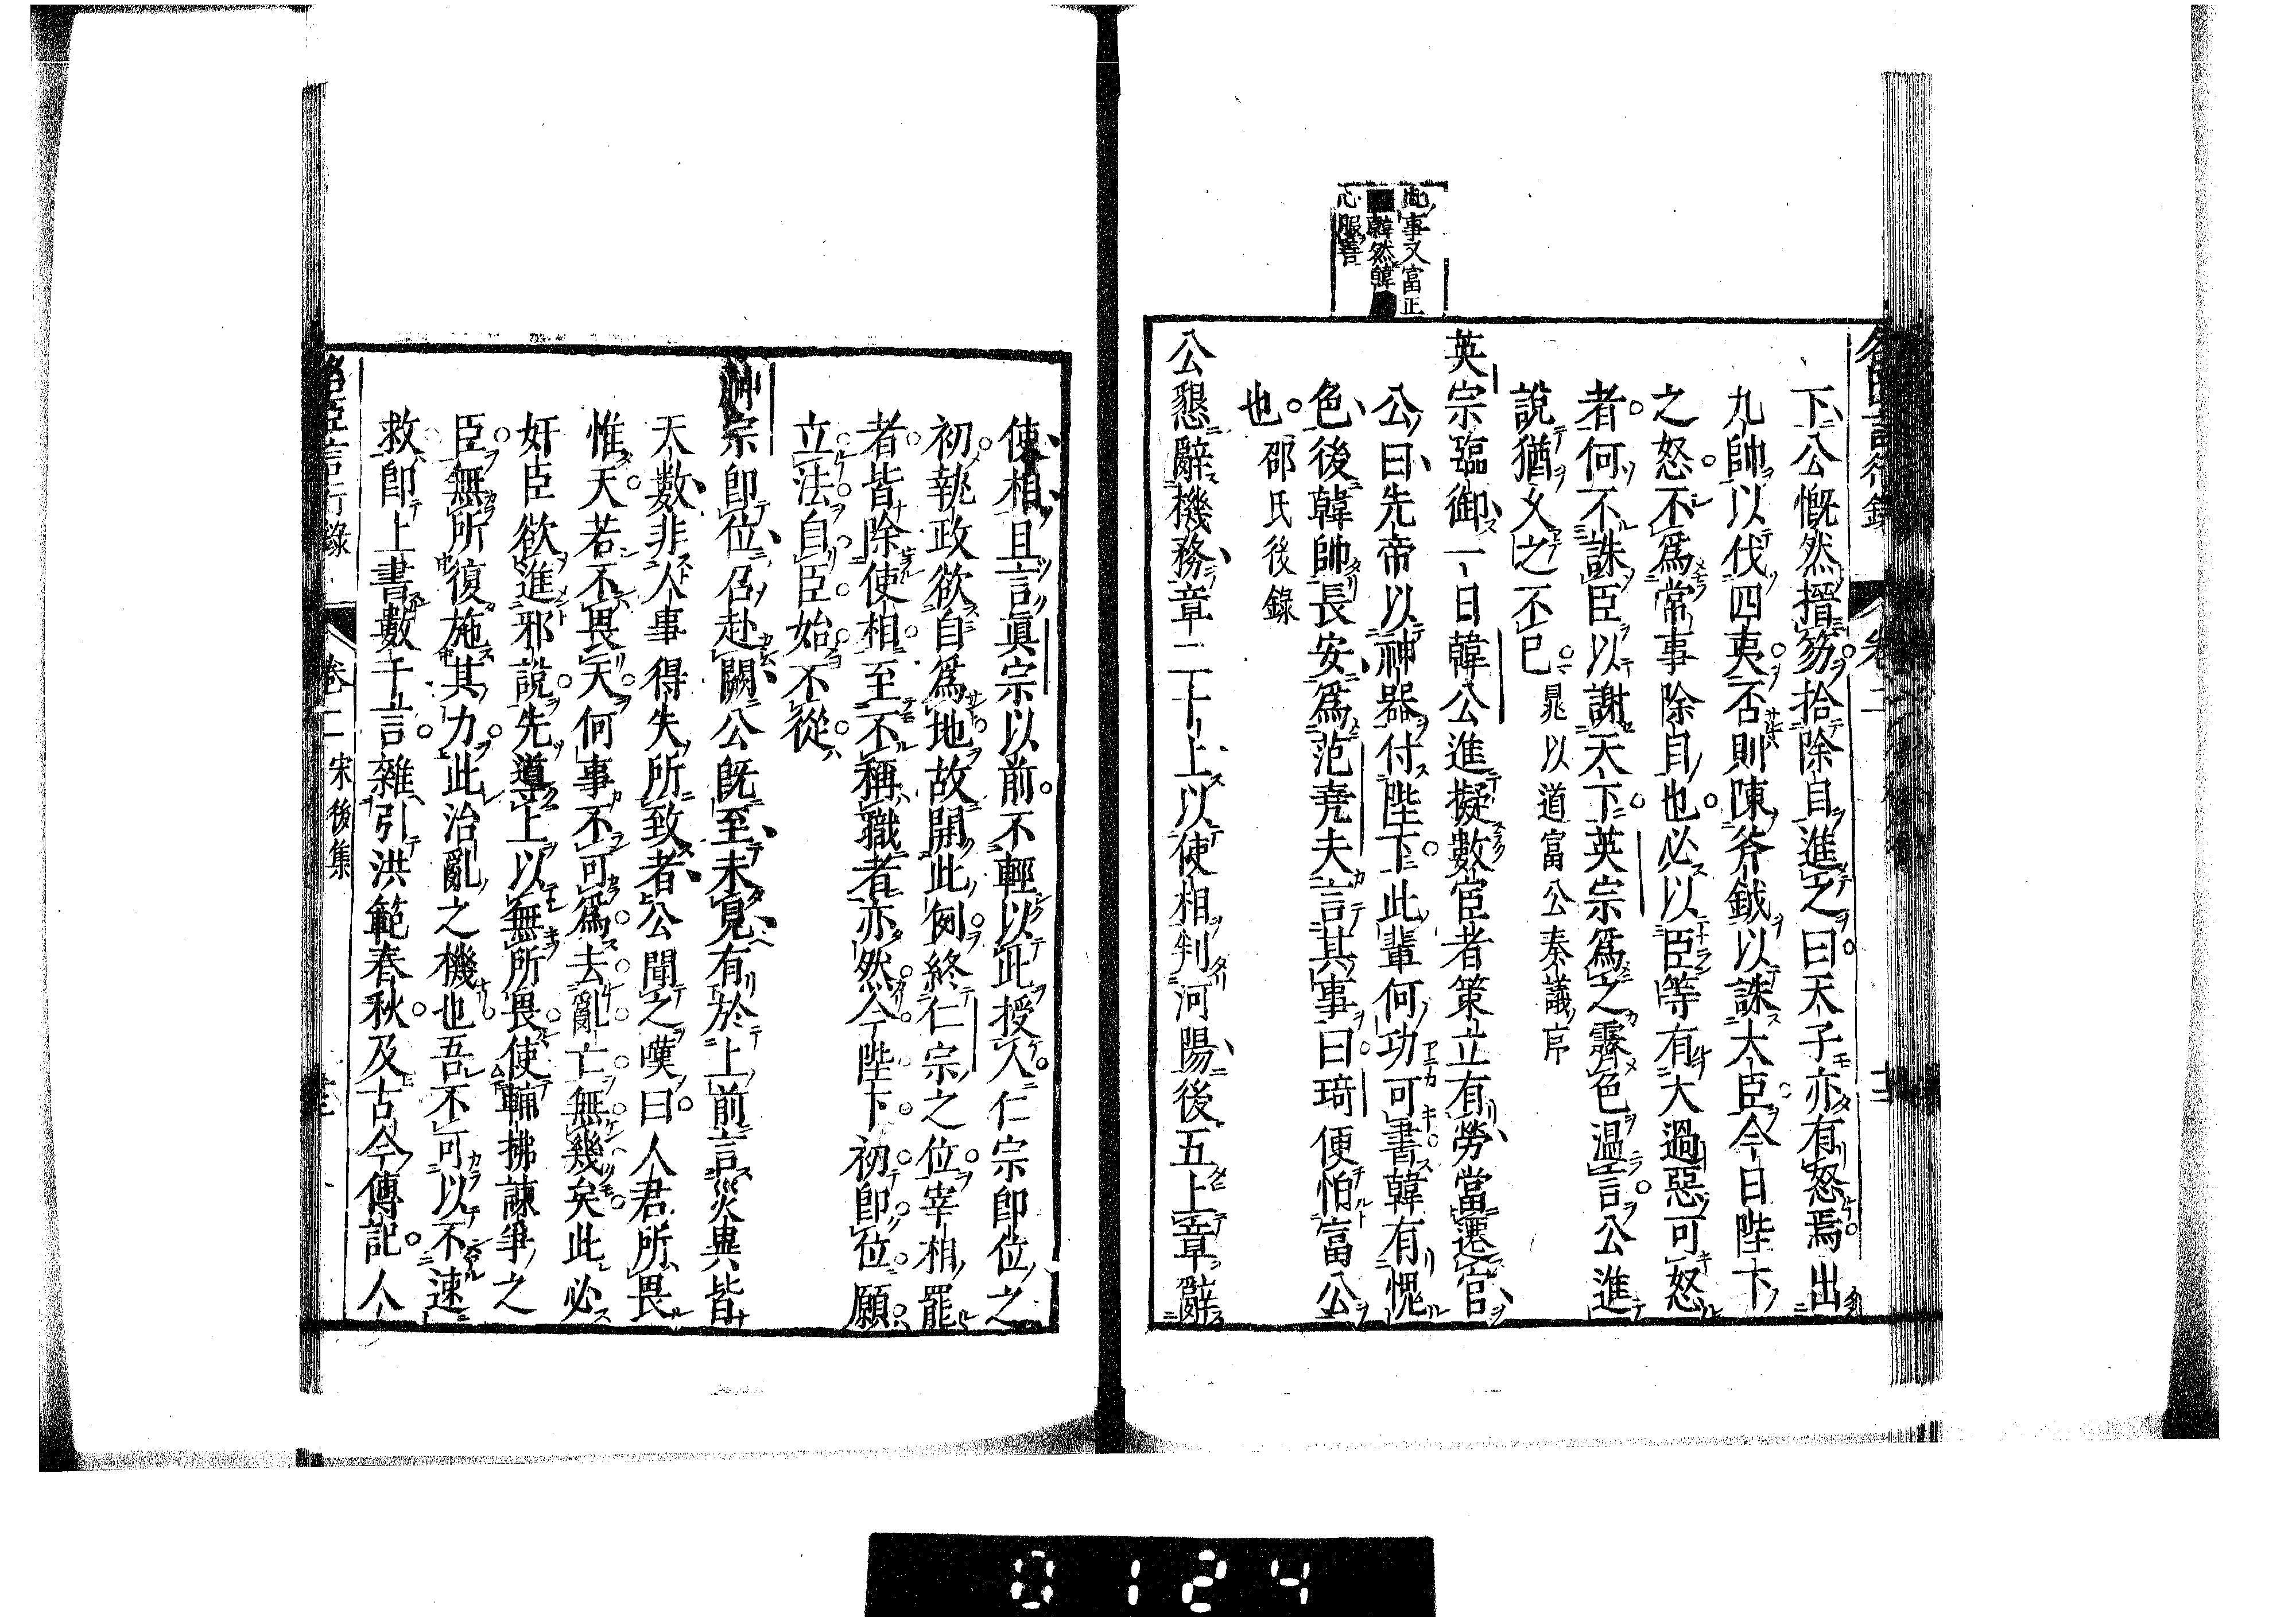 此事又富正
韓然韓
心服善
名臣言行錄 卷二
下公慨然搢笏拾除目進之曰天子亦有怒焉出
九帥以伐四夷否則陳斧鉞以誅大臣今日陛下
之怒不爲常事除目也必以臣等有大過惡可怒
者何不誅臣以謝天下英宗爲之霽色温言公進
說猶久之不已晁以道富公奏議序
英宗臨御一日韓公進擬數宦者策立有勞當遷官
公曰先帝以神器付陛下此輩何功可書韓有愧
色後韓帥長安爲范堯夫言其事曰琦便怕富公
也邵氏後錄
公懇辭機務章二十上以使相判河陽後五上章辭
使相且言眞宗以前不輕以此授人仁宗即位之
初執政欲自爲地故開此例終仁宗之位宰相罷
者皆除使相至不稱職者亦然今陛下初即位願
立法自臣始不從
神宗即位召赴闕公既至未見有於上前言災異皆
天數非人事得失所致者公聞之嘆曰人君所畏
惟天若不畏天何事不可爲去亂亡無幾矣此必
奸臣欲進邪說先導上以無所畏使輔拂諫爭之
臣無所復施其力此治亂之機也吾不可以不速
救即上書數千言雜引洪範春秋及古今傳記人
名臣言行錄 卷二 宋後集
0124